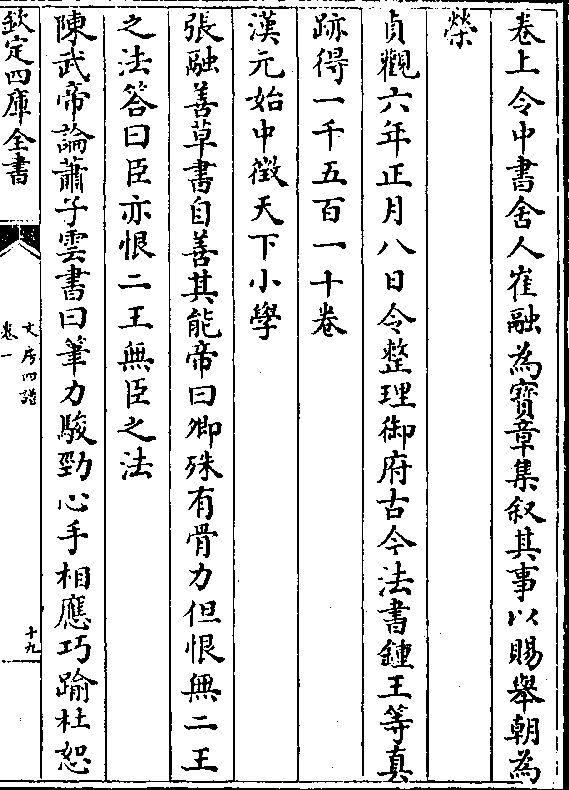 卷上令中書舍人崔融為寶章集叙其事以賜舉朝為
榮
貞觀六年正月八日令整理御府古今法書鍾王等真
跡得一千五百一十卷
漢元始中徴天下小學
張融善草書自善其能帝曰卿殊有骨力但恨無二王
之法答曰臣亦恨二王無臣之法
陳武帝論蕭子雲書曰筆力駿勁心手相應巧踰杜恕
欽定四庫全書
文房四譜
卷一
十九